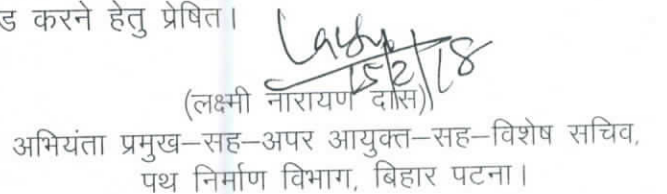 ड करने हेतु प्रेषित।
15/2/18
(लक्ष्मी नारायण दास)
अभियंता प्रमुख–सह–अपर आयुक्त–सह–विशेष सचिव,
पथ निर्माण विभाग, बिहार पटना।